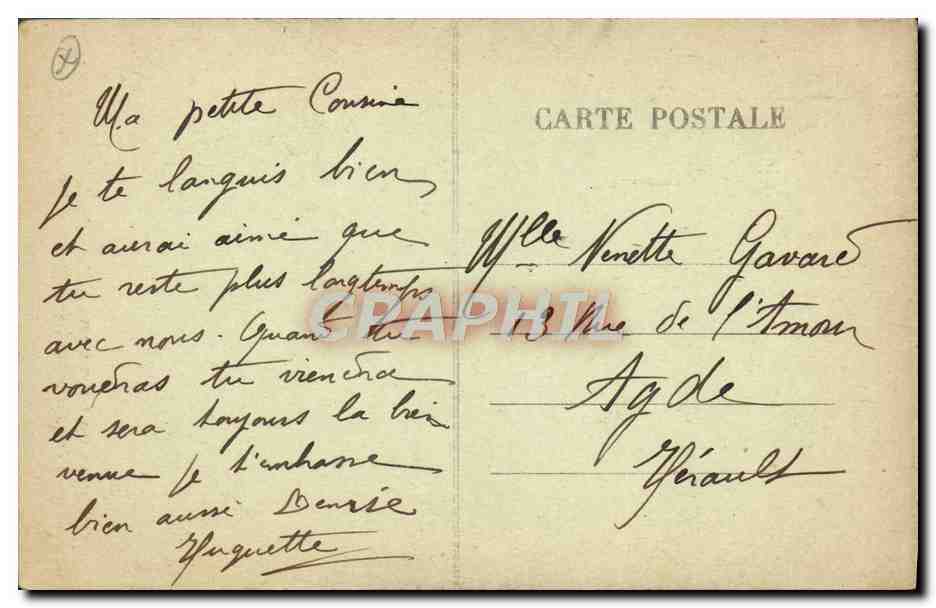 Ma petite Cousine
je te languis bien
et aurai aimé que
tu reste plus longtemps
avec nous. Quant tu
voudras tu viendra
et sera toujours la bien
venue je t'embrasse
bien aussi Denise
Huguette
CARTE POSTALE
Mlle Nenette Gavard
13 Rue de l'Amour
Agde
Hérault
CRAPHIL